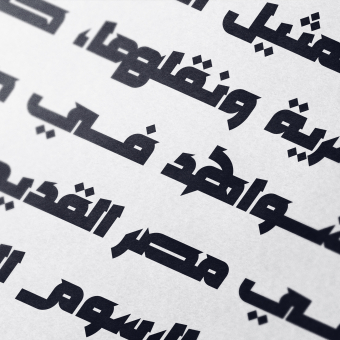 مثيل
رية ونقلها،
شواهد في
في مصر القديمـ
الرسوم ا